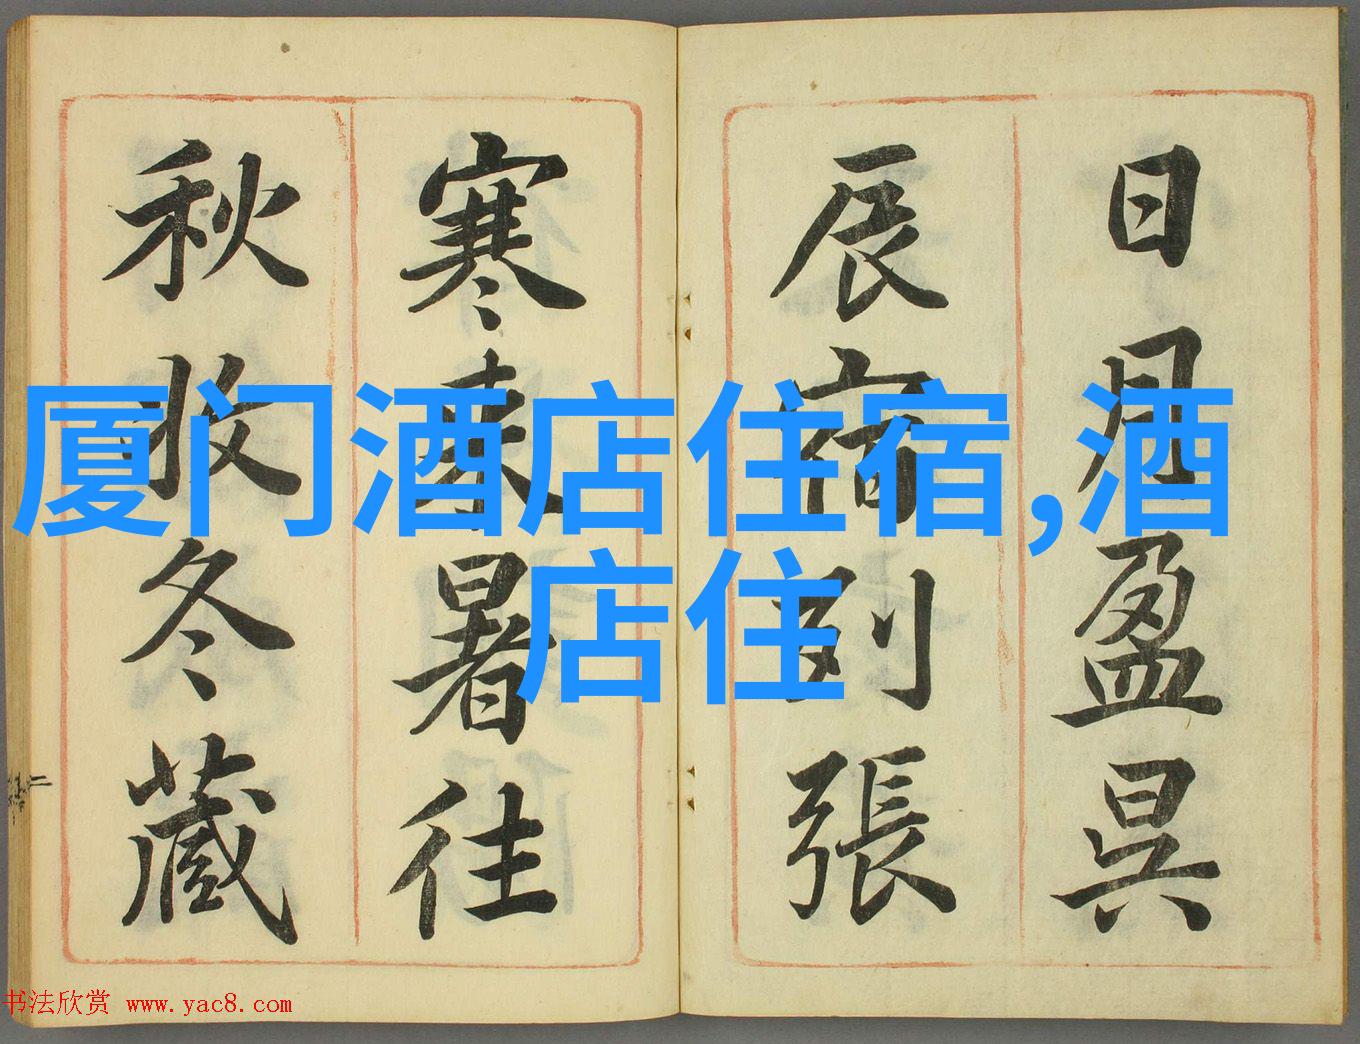 日月盈昃
辰宿列張
寒來暑往
秋收冬藏
厦门酒店住宿,酒
店住
书法欣赏 www.yac8.com